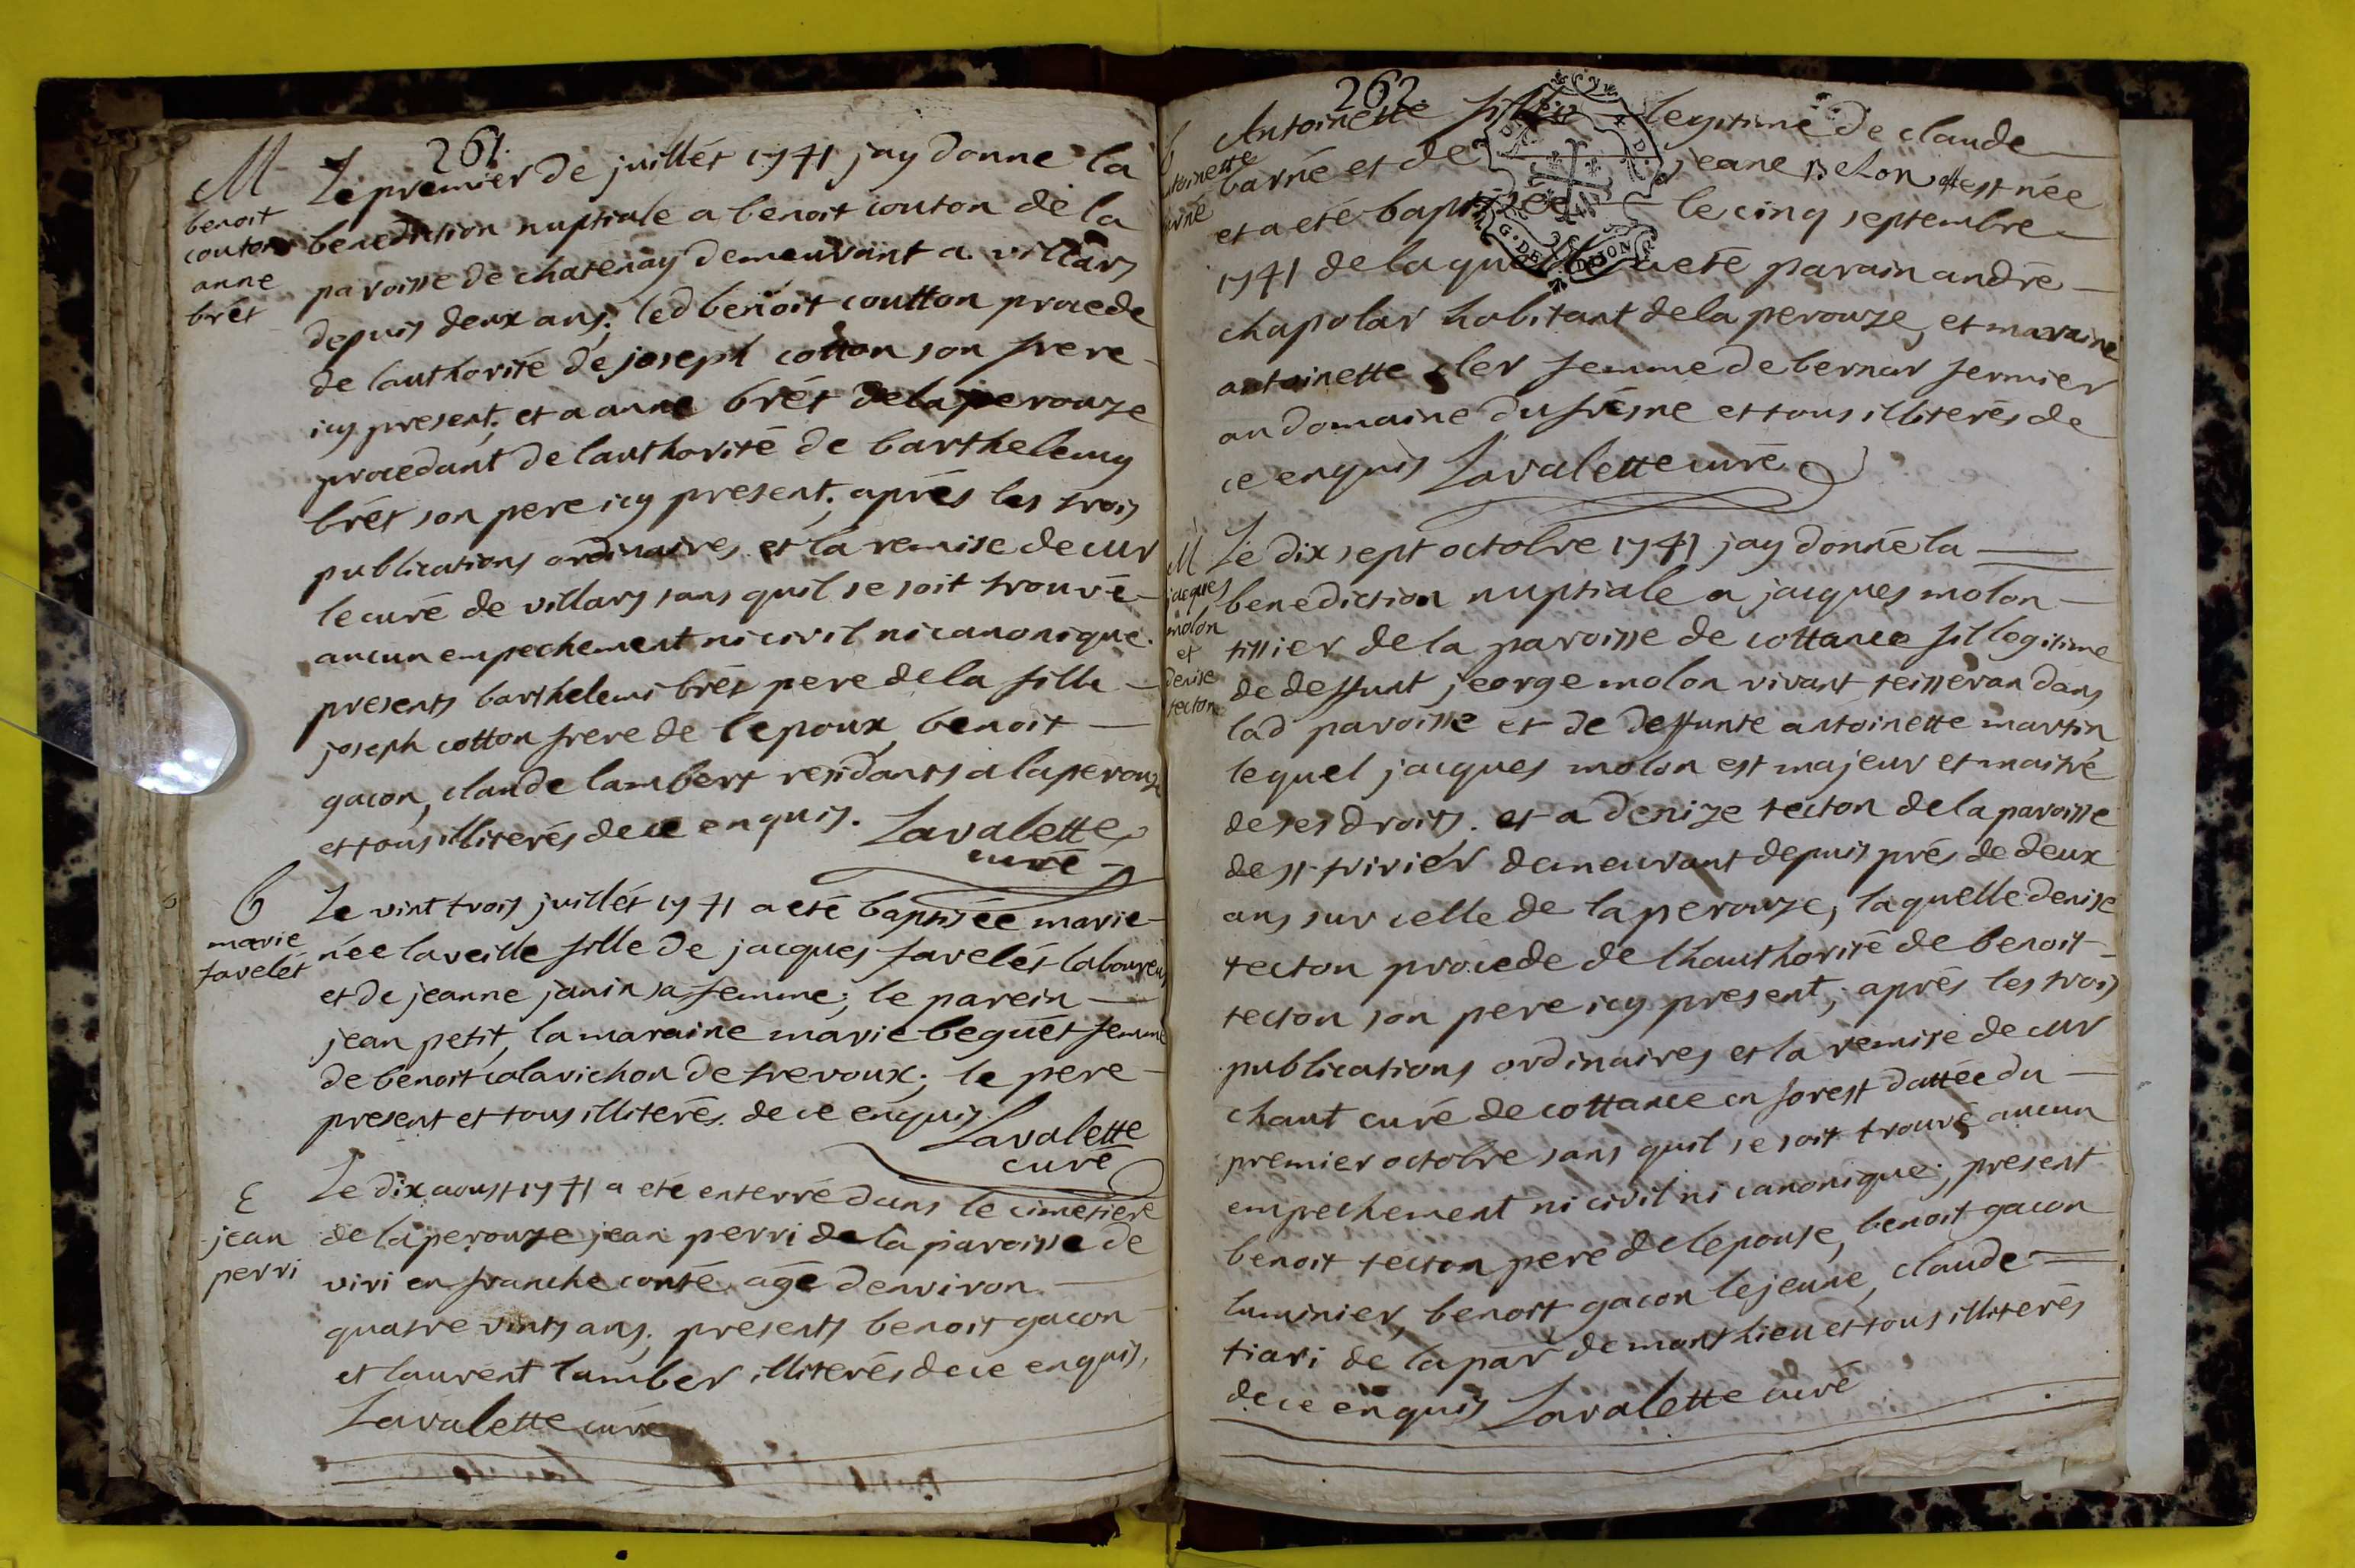 261.
M
benoit
couton
anne
brét
Le premier de juillét 1741 jay donne la
benediction nuptiale a benoit couton de la
paroisse de chatenay demeurant a villars
depuis deux ans; led benoit coutton procede
de lauthorité de joseph cotton son frere
icy present; et a anne brét delaperouze
procedant de lauthorité de barthelemy
brét son pere icy present; aprés les trois
publications ordinaires et la remise de cur
le curé de villars sans quil se soit trouvé
aucun empechement ni civil ni canonique.
presents barthelemi brét pere de la fille
joseph cotton frere de lepoux, benoit
gacon, claude lambert residants a laperouze
et tous illiterés de ce enquis. Lavalette
curé
b
marie
favelét
Le vint trois juillét 1741 a eté baptisée marie
née laveille fille de jacques favelét laboureur
et de jeanne janin sa femme; le parein
jean petit, la maraine marie beguét femme
de benoit calavichon de trevoux; le pere
present et tous illiterés de ce enquis.
Lavalette
curé
E
jean
perri
Le dix aoust 1741 a eté enterré dans le cimetiere
de laperouze jean perri de la paroisse de
viri en franche conté agé denviron
quatre vints ans. presents benoit gacon
et laurent lamber illiterés de ce enquis,
Lavalette curé
262.
b
antoinette
barné
Antoinette fille legitime de claude
barné et de jeane est née
et a eté baptisée le cinq septembre
1741 de laquelle a eté parain andré
chapolar habitant de la perouze, et maraine
antoinette femme de bernar fermier
au domaine du frésne et tous illiterés de
ce enquis Lavalette curé
M
jacques
molon
et
denise
tecton
Le dix sept octobre 1741 jay donné la
benediction nuptiale a jacques molon
tissier de la paroisse de cottance fil legitime
de deffunt jeorge molon vivant teisseran dans
lad paroisse et de deffunte antoinette martin
lequel jacques molon est majeur et maitre
de ses droits. et a denize tecton de la paroisse
de st trivier demeurant depuis prés de deux
ans sur celle de laperouze, laquelle denise
tecton procede de lhauthorité de benoit
tecton son pere icy present; aprés les trois
publications ordinaires et la remise de cur
chaut curé de cottance en forest dattée du
premier octobre sans quil se soit trouvé aucun
empechement ni civil ni canonique; present
benoit tecton pere de lepouse, benoit gacon
luminier, benoit gacon le jeune, claude
tiari de la par de monthieu et tous illiterés
de ce enquis Lavalette curé
G. DE DIJON